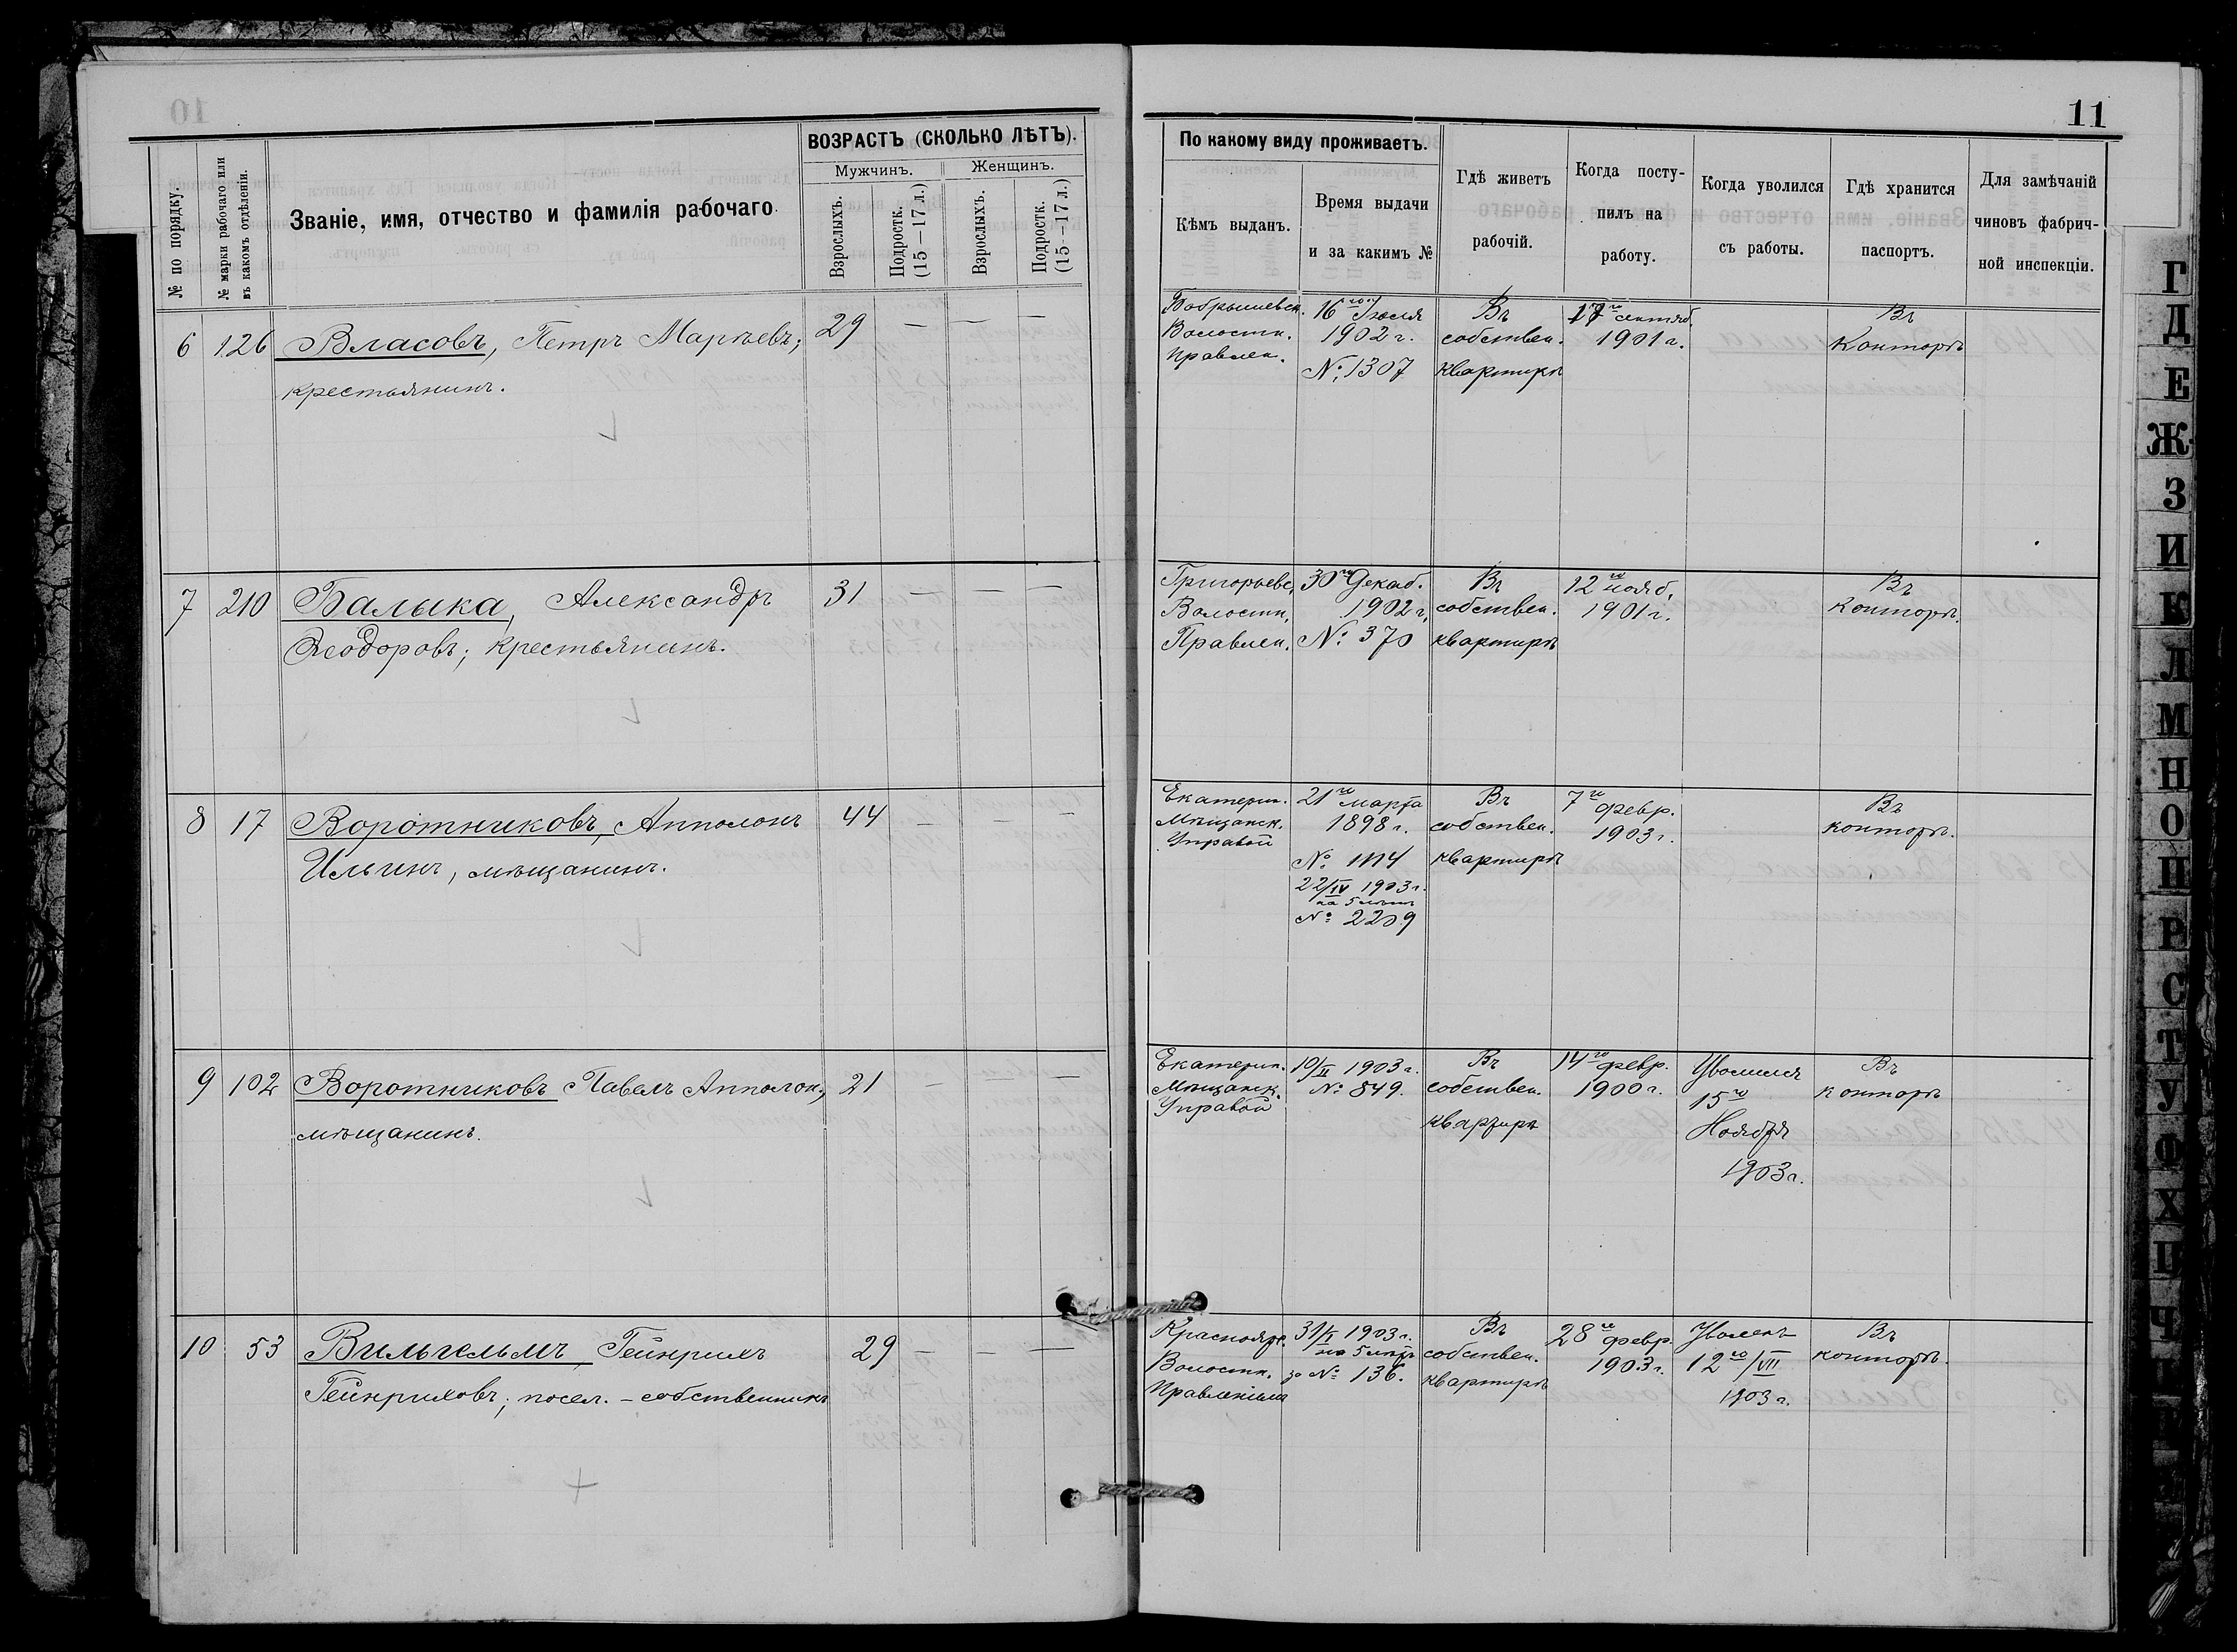 11
ВОЗРАСТЪ (СКОЛЬКО ЛѢТЪ).
Мужчинъ. Женщинъ.
№ по порядку.
№ марки рабочаго или
въ какомъ отдѣленіи.
Званіе, имя, отчество и фамилія рабочаго
Взрослыхъ.
Подростк.
(15—17 л.)
Взрослыхъ.
Подростк.
(15—17 л.)
По какому виду проживаетъ.
Кѣмъ выданъ.
Время выдачи
и за какимъ №
Гдѣ живетъ
рабочій.
Когда посту-
пилъ на
работу.
Когда уволился
съ работы.
Гдѣ хранится
паспортъ.
Для замѣчаній
чиновъ фабрич-
ной инспекціи.
6 126 Власовъ, Петръ 29 — — —
крестьянинъ.
Волостн.
Правлен.
16го Іюля
1902 г.
№ 1307
Въ
собствен.
квартирѣ
17го сентяб.
1901 г.
Въ
Конторѣ
7 210 Балыка, Александръ 31 — — —
Ѳеодоровъ; крестьянинъ.
Григорьевс.
Волостн.
Правлен.
30го Декаб.
1902 г.
№ 370
Въ
собствен.
квартирѣ
12го нояб.
1901 г.
Въ
конторѣ.
8 17 Воротниковъ, Апполонъ 44 — — —
Ильинъ, мѣщанинъ.
Екатерин.
Мѣщанск.
Управой
21го марта
1898 г.
№ 1114
22/IV 1903 г.
на 5 лѣтъ
№ 2209
Въ
собствен.
квартирѣ
7го февр.
1903 г.
Въ
конторѣ.
9 102 Воротниковъ Павелъ Апполон., 21 — — —
мѣщанинъ.
Екатерин.
Мѣщанск.
Управой
10/II 1903 г.
№ 849.
Въ
собствен.
квартирѣ
14го февр.
1900 г.
Уволился
15го
Ноября
1903 г.
Въ
конторѣ
10 53 Вильгельмъ Гейнрихъ 29 — — —
Гейнриховъ; посел. - собственникъ
Краснояр.
Волостн.
Правленіемъ
31/I 1903 г.
на 5 лѣтъ
за № 136.
Въ
собствен.
квартирѣ
28го февр.
1903 г.
Уволенъ
12го/VII
1903 г.
Въ
конторѣ.
Г
Д
Е
Ж
З
И
К
Л
М
Н
О
П
Р
С
Т
У
Ф
Х
Ц
Ч